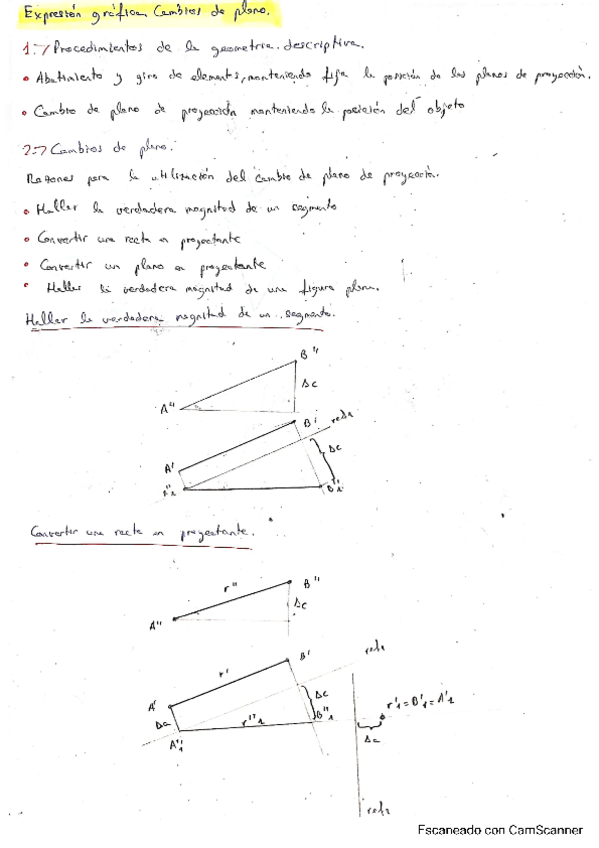 Expresión gráfica. Cambios de plano.
1.7 Procedimientos de la geometría descriptiva.
• Abatimiento y giro de elementos, manteniendo fija la posición de los planos de proyección.
• Cambio de plano de proyección manteniendo la posición del objeto
2.7 Cambios de plano.
Razones para la utilización del cambio de plano de proyección.
• Hallar la verdadera magnitud de un segmento
• Convertir una recta en proyectante
• Convertir un plano en proyectante
• Hallar la verdadera magnitud de una figura plana.
Hallar la verdadera magnitud de un segmento.
B"
Δc
A"
B'
Δc
A'
B"1
Convertir una recta en proyectante.
r"
B"
Δc
A"
r'
B'
A'
Δc
Δc
r"1
B"1
A"1
r'1=B'1=A'1
Δc
Escaneado con CamScanner